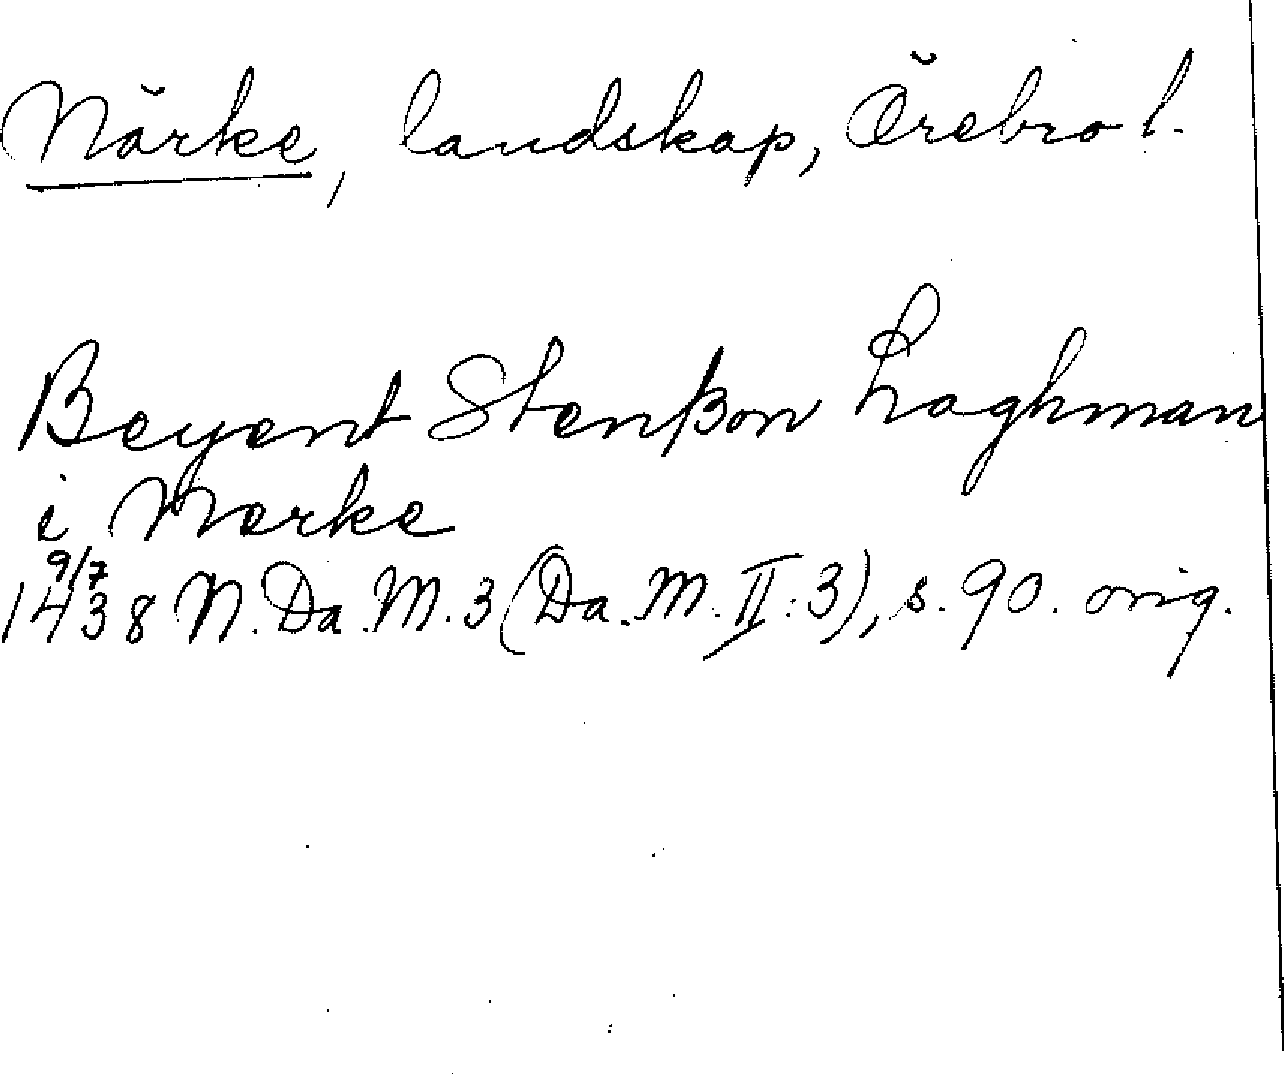 Närke, landskap, Örebro l.
Beyent Stenßon Laghman
i Nerke
9/7 1438 N. Da. M. 3 (Da. M. II: 3), s. 90. orig.